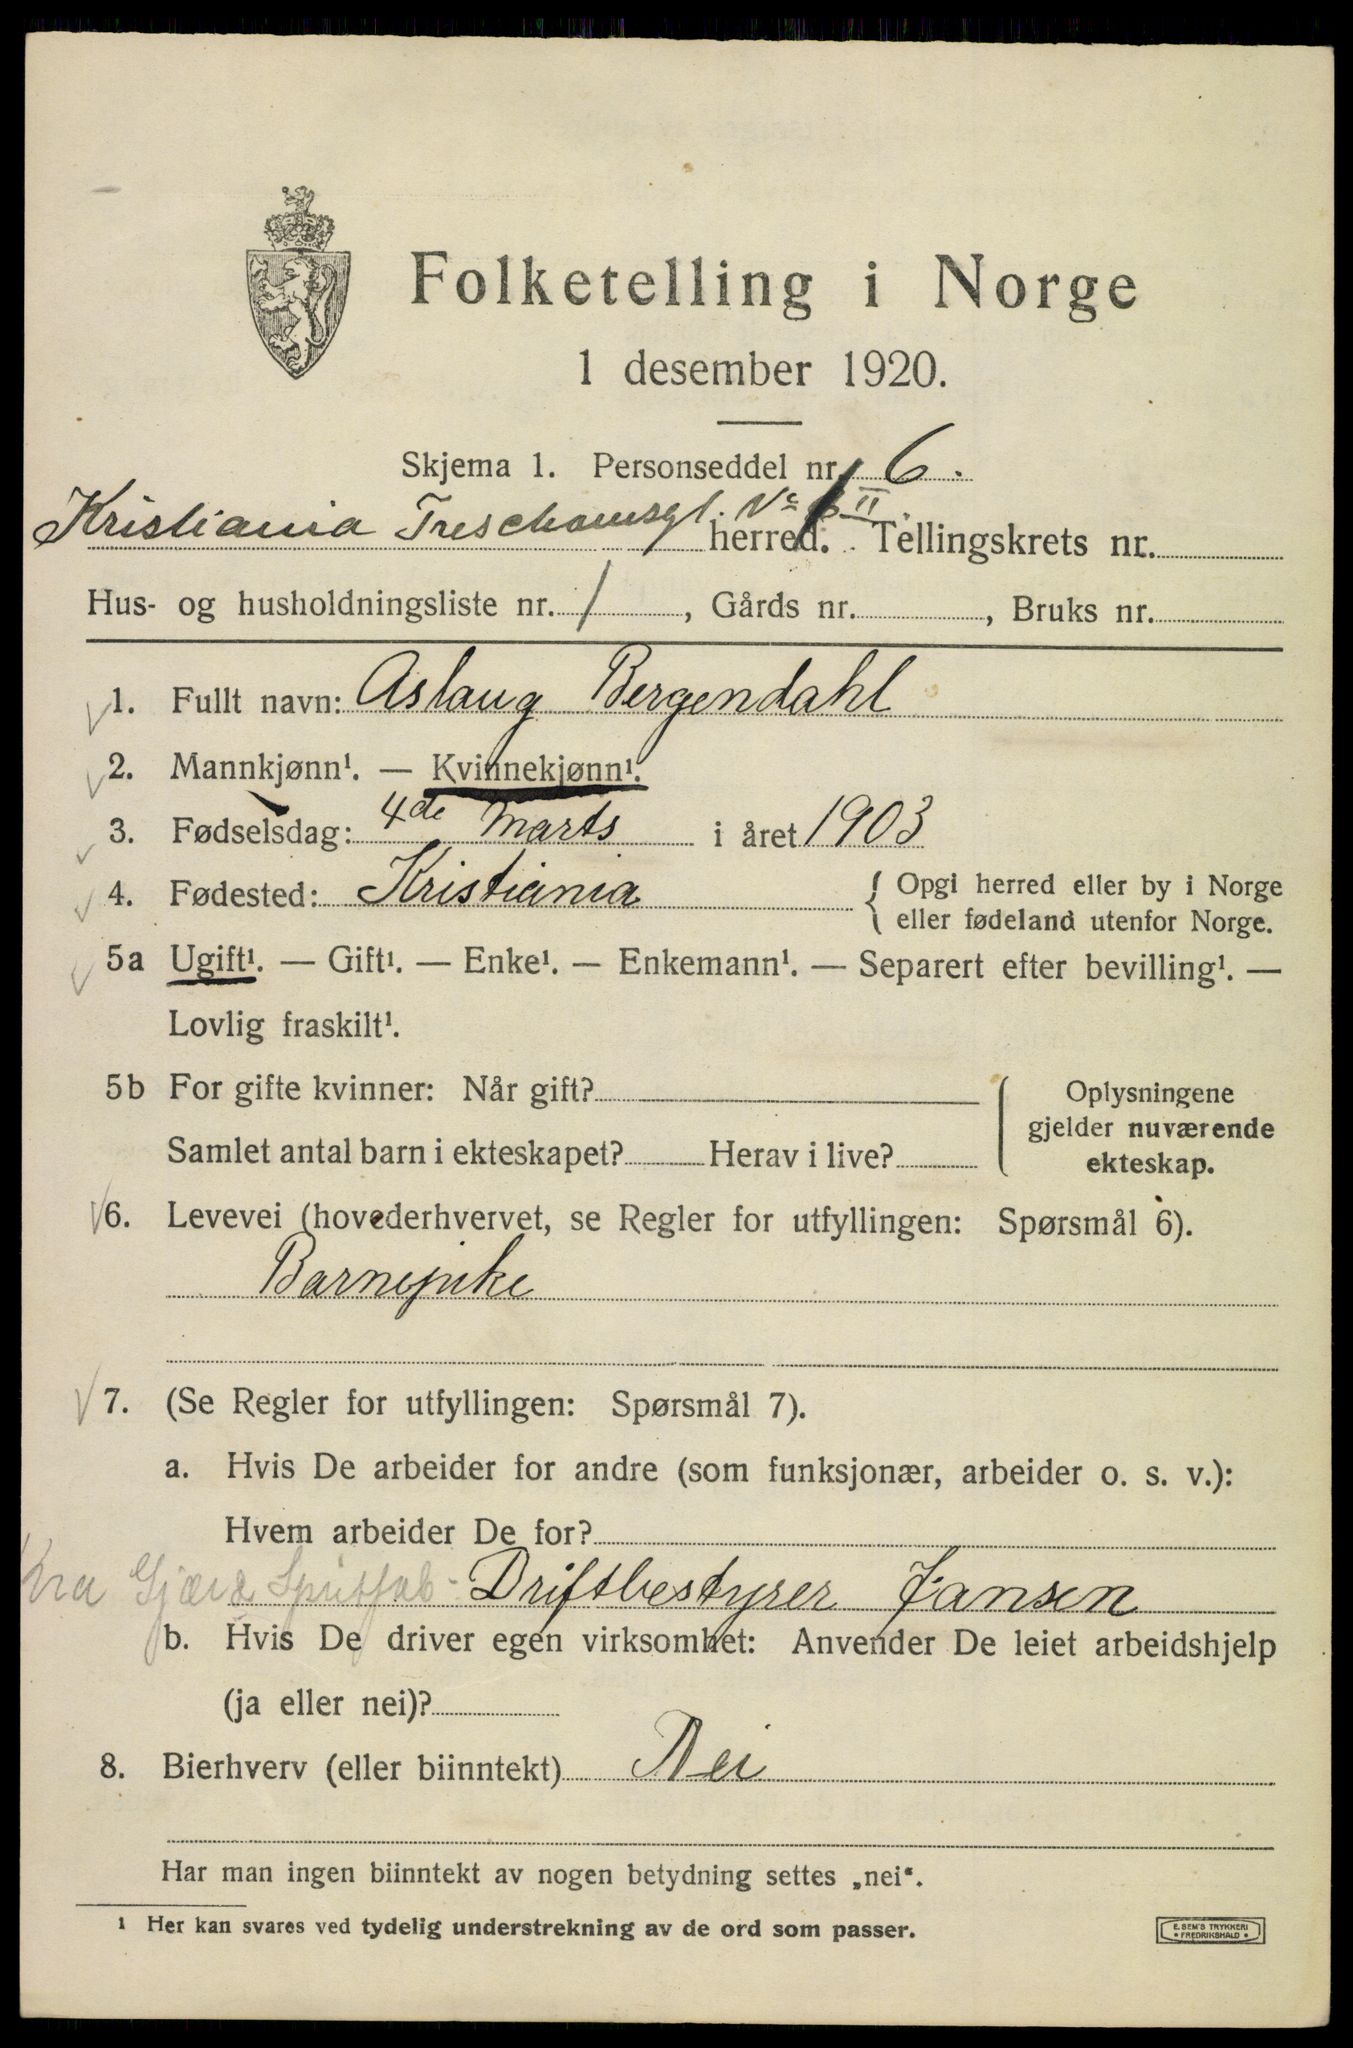 Folketelling i Norge
1 desember 1920.
Skjema 1. Personseddel nr. 6.
Kristiania Treschowsgt. No II herred. Tellingskrets nr.
Hus- og husholdningsliste nr. 1, Gårds nr. , Bruks nr.
1. Fullt navn: Aslaug Bergendahl
2. Mannkjønn¹. — Kvinnekjønn¹.
3. Fødselsdag: 4de Marts i året 1903
4. Fødested: Kristiania { Opgi herred eller by i Norge
eller fødeland utenfor Norge.
5a Ugift¹. — Gift¹. — Enke¹. — Enkemann¹. — Separert efter bevilling¹. —
Lovlig fraskilt¹.
5b For gifte kvinner: Når gift?
Samlet antal barn i ekteskapet? Herav i live?
Oplysningene
gjelder nuværende
ekteskap.
6. Levevei (hovederhvervet, se Regler for utfyllingen: Spørsmål 6).
Barnepike
7. (Se Regler for utfyllingen: Spørsmål 7).
a. Hvis De arbeider for andre (som funksjonær, arbeider o. s. v.):
Hvem arbeider De for?
Kra Gjær & Spritfab. Driftbestyrer Jansen
b. Hvis De driver egen virksomhet: Anvender De leiet arbeidshjelp
(ja eller nei)?
8. Bierhverv (eller biinntekt) Nei
Har man ingen biinntekt av nogen betydning settes „nei“.
1 Her kan svares ved tydelig understrekning av de ord som passer.
E. SEM'S TRYKKERI
• FREDRIKSHALD •